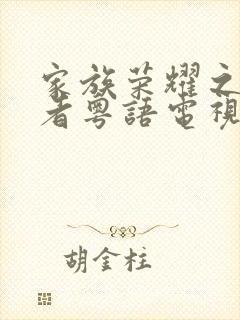 家族荣耀之
者粤語電視
胡金柱